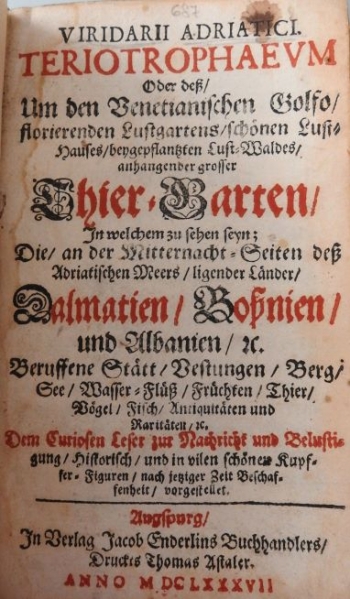 687
VIRIDARII ADRIATICI.
TERIOTROPHAEVM
Oder deß/
Um den Venetianischen Golfo/
florierenden Lustgartens/schönen Lust-
Hauses/beygepflantzten Lust-Waldes/
anhangender grosser
Thier-Garten/
In welchem zu sehen seyn;
Die/ an der Mitternacht-Seiten deß
Adriatischen Meers/ ligender Länder/
Dalmatien/ Boßnien/
und Albanien/ ꝛc.
Beruffene Stätt/ Vestungen/ Berg/
See/ Wasser-Flüß/ Früchten/ Thier/
Vögel/ Fisch/ Antiquitäten und
Raritäten/ ꝛc.
Dem Curiosen Leser zur Nachricht und Belusti-
gung/ Historisch/ und in vilen schönen Kupf-
fer-Figuren/ nach jetziger Zeit Beschaf-
fenheit/ vorgestellt.
Augspurg/
In Verlag Jacob Enderlins Buchhandlers/
Druckts Thomas Astaler.
ANNO MDCLXXXVII